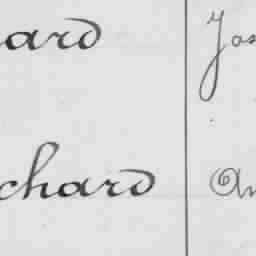 ard Jos
chard An